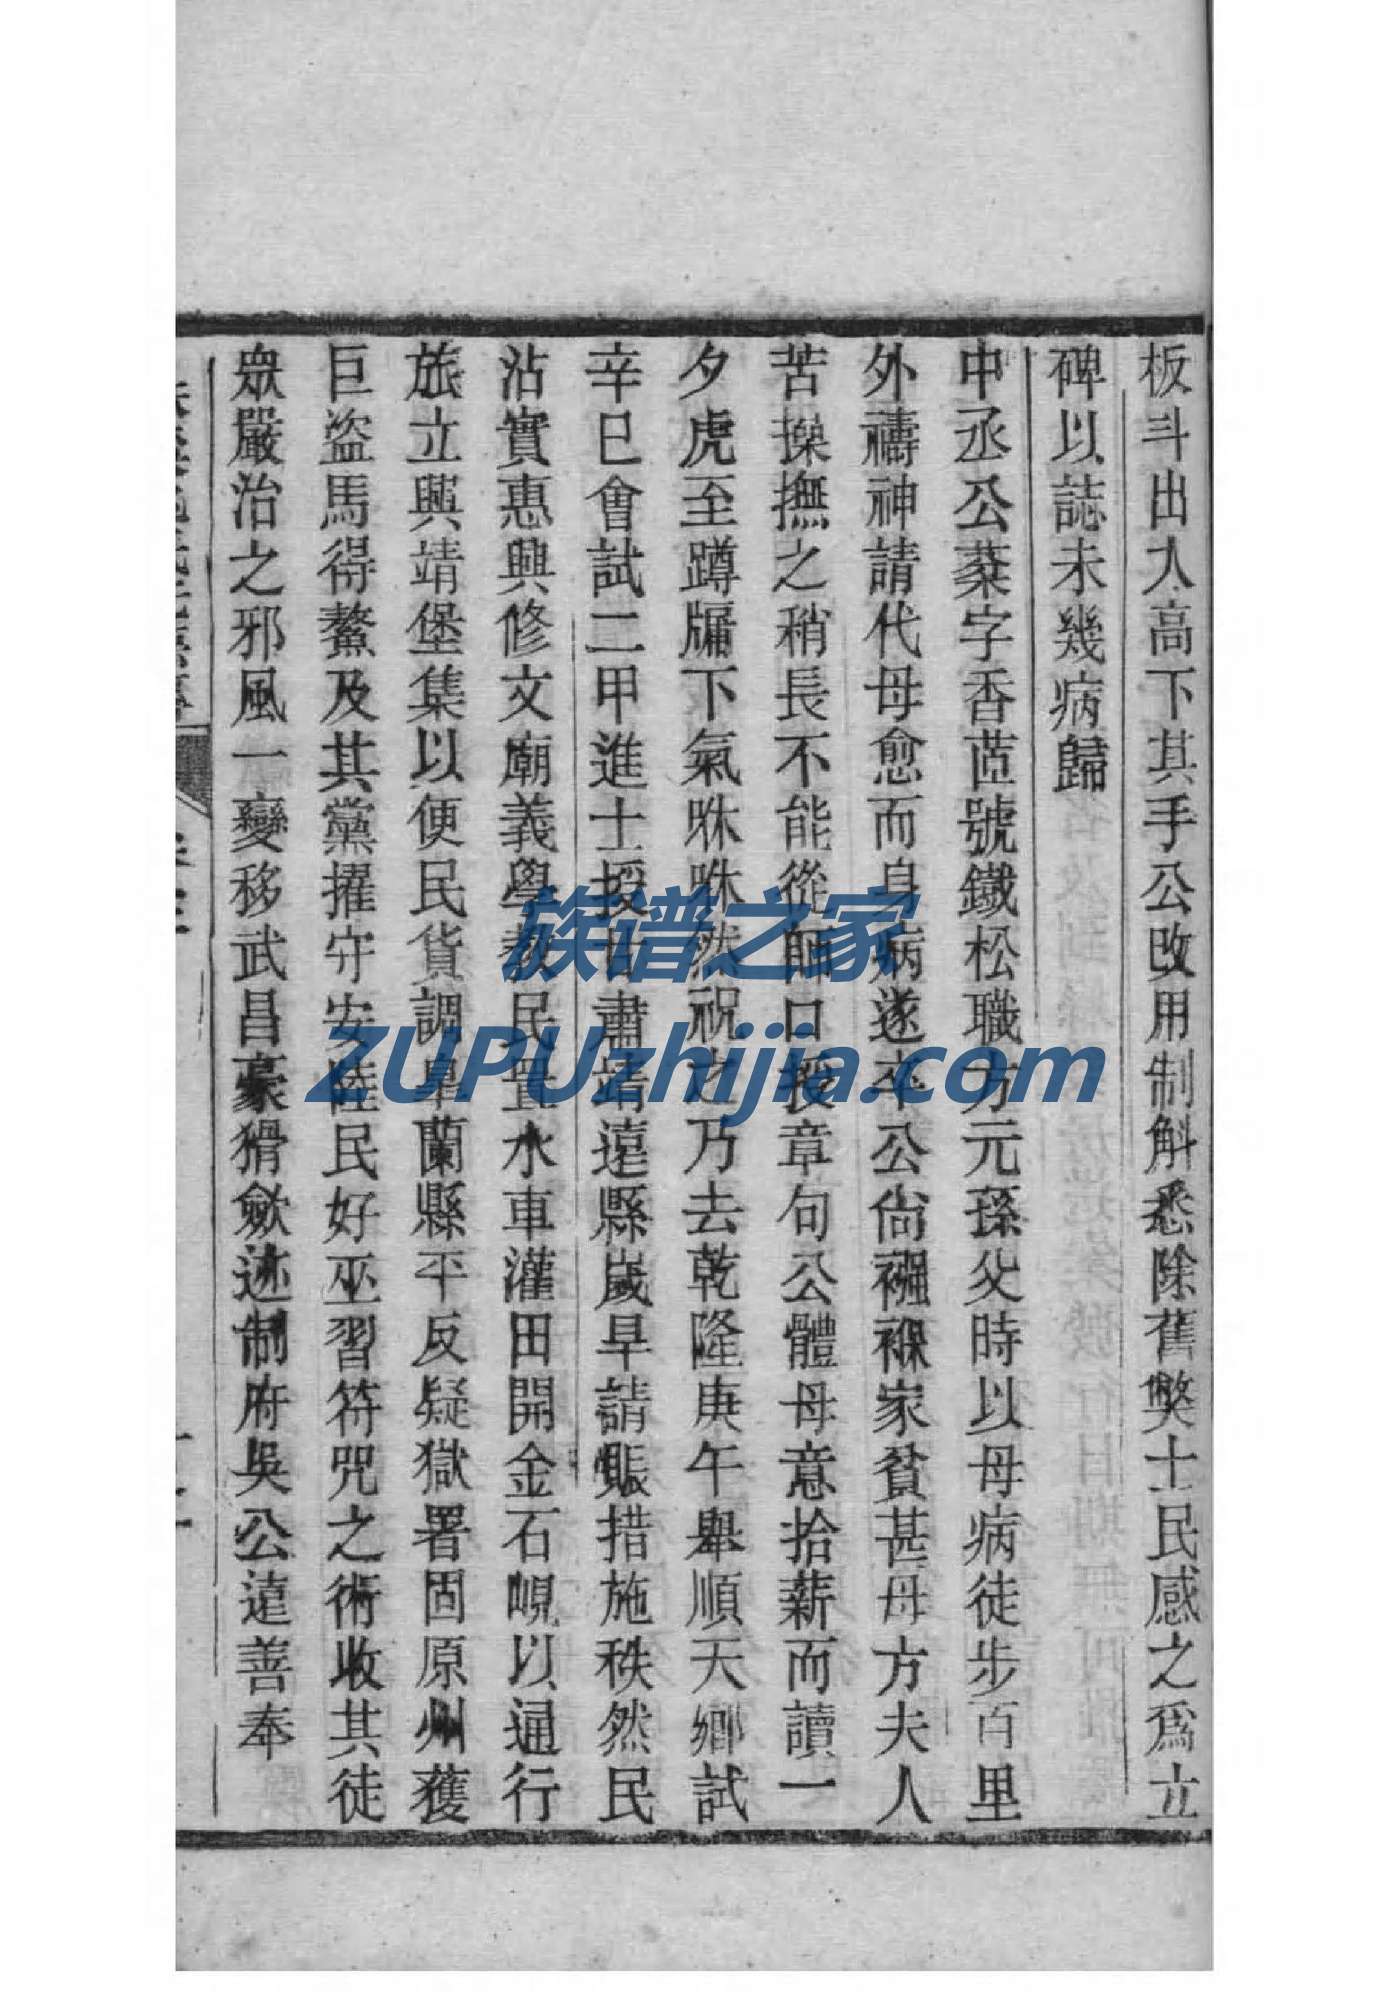 板斗出入高下其手公改用制斛悉除舊獘士民感之為立
碑以誌未幾病歸
中丞公蔾字香茝號鐵松職方元孫父時以母病徒步百里
外禱神請代母愈而身病遂卒公尙襁褓家貧甚母方夫人
苦操撫之稍長不能從師口授章句公體母意拾薪而讀一
夕虎至蹲牖下氣咻咻然祝之乃去乾隆庚午舉順天鄉試
辛巳會試二甲進士授甘肅靖遠縣歲旱請賑措施秩然民
沾實惠興修文廟義學教民置水車灌田開金石峴以通行
旅立興靖堡集以便民貨調皋蘭縣平反疑獄署固原州獲
巨盜馬得鰲及其黨擢守安陸民好巫習符咒之術收其徒
眾嚴治之邪風一變移武昌豪猾斂迹制府吳公達善奉
族谱之家
ZUPUzhijia.com